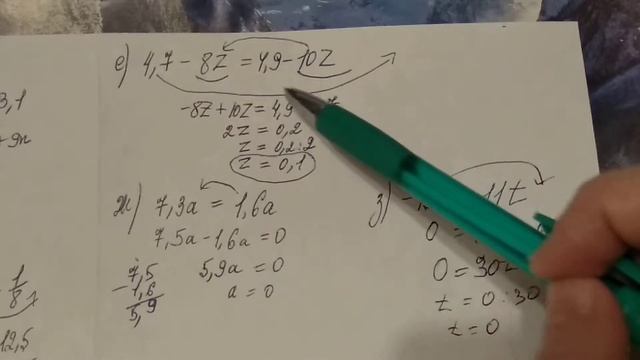 е) 4,7 - 8z = 4,9 - 10z
-8z + 10z = 4,9
2z = 0,2
z = 0,2 : 2
z = 0,1
ж) 7,3a = 1,6a
7,5a - 1,6a = 0
5,9a = 0
a = 0
7,5
- 1,6
5,9
з) 11t
0 =
0 = 30
t = 0 : 30
t = 0
3,1
+ 9n
1
8
12,5